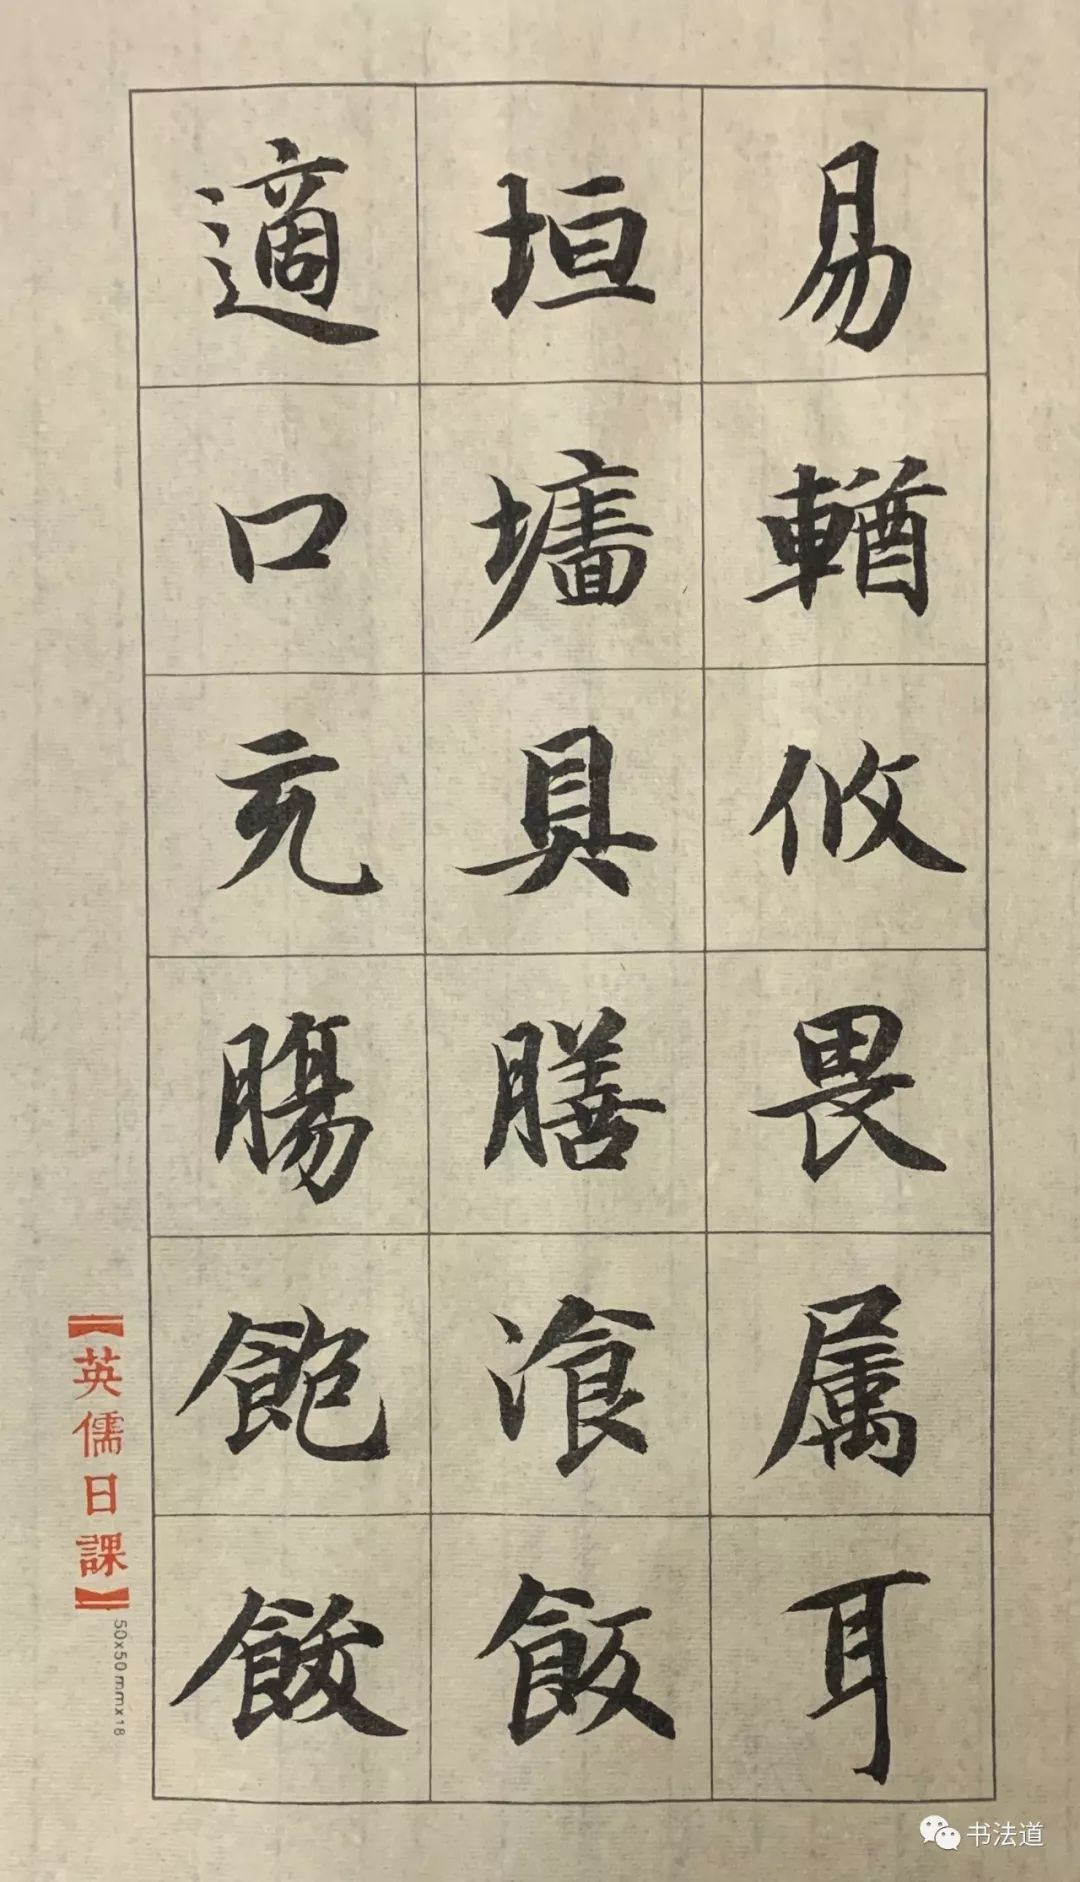 易輶攸畏属耳
垣墻具膳飡飯
適口充腸飽飫
【英儒日課】
50x50mmx18
书法道